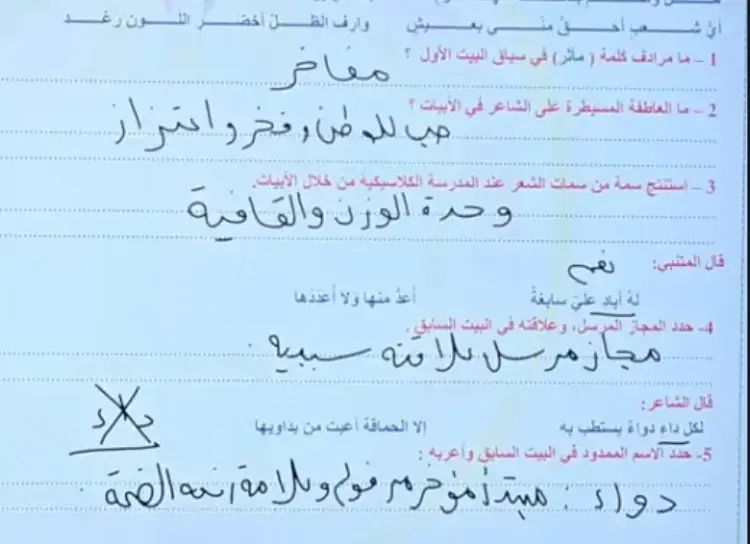 أيّ شـــعبٍ أحـــقُّ منّـــي بعـــيشٍ وارف الظـــلّ أخضـــر اللّـــون رغـــد
1 – ما مرادف كلمة ( مآثر) في سياق البيت الأول ؟
مفاخر
2 – ما العاطفة المسيطرة على الشاعر في الأبيات ؟
حب للوطن وفخر واعتزاز
3 – استنتج سمة من سمات الشعر عند المدرسة الكلاسيكية من خلال الأبيات.
وحدة الوزن والقافية
قال المتنبي:
نعم
لهُ أيادٍ عليّ سابغةٌ أعدُّ منها ولا أعددُها
4- حدد المجاز المرسل، وعلاقته في البيت السابق .
مجاز مرسل علاقته سببيه
قال الشاعر:
لكل داءٍ دواءٌ يستطب به إلا الحماقة أعيت من يداويها
داء
5- حدد الاسم الممدود في البيت السابق وأعربه :
دواء : مبتدأ مؤخر مرفوع وعلامة رفعه الضمة